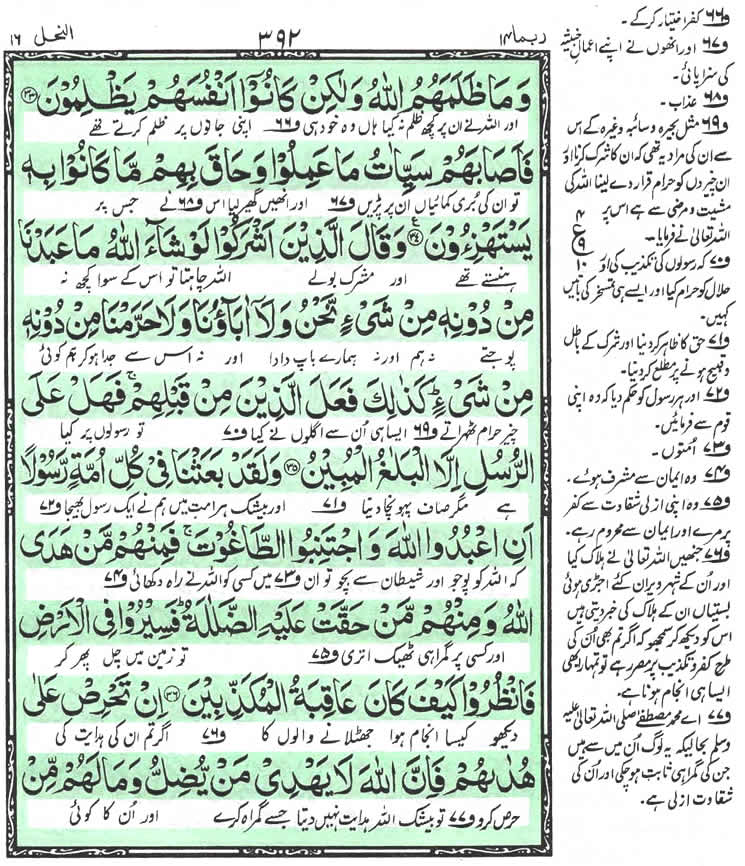 ربما ۱۴
۳۹۲
النحل ۱۶
وَمَا ظَلَمَهُمُ اللّٰهُ وَلٰكِنْ كَانُوْۤا اَنْفُسَهُمْ يَظْلِمُوْنَ ﴿۳۳﴾
اور اللہ نے ان پر کچھ ظلم نہ کیا ہاں وہ خود ہی ف۶۶ اپنی جانوں پر ظلم کرتے تھے
فَاَصَابَهُمْ سَيِّاٰتُ مَا عَمِلُوْا وَحَاقَ بِهِمْ مَّا كَانُوْا بِهٖ
تو ان کی بُری کمائیاں ان پر پڑیں ف۶۷ اور انھیں گھیر لیا اس ف۶۸ نے جس پر
يَسْتَهْزِءُوْنَ ﴿۳۴﴾ وَقَالَ الَّذِيْنَ اَشْرَكُوْا لَوْ شَآءَ اللّٰهُ مَا عَبَدْنَا
ہنستے تھے اور مشرک بولے اللہ چاہتا تو اس کے سوا کچھ نہ
مِنْ دُوْنِهٖ مِنْ شَيْءٍ نَّحْنُ وَلَاۤ اٰبَآؤُنَا وَلَا حَرَّمْنَا مِنْ دُوْنِهٖ
پوجتے نہ ہم اور نہ ہمارے باپ دادا اور نہ اس سے جدا ہو کر ہم کوئی
مِنْ شَيْءٍ ؕ كَذٰلِكَ فَعَلَ الَّذِيْنَ مِنْ قَبْلِهِمْ ۚ فَهَلْ عَلَى
چیز حرام ٹھہراتے ف۶۹ ایسا ہی اُن سے اگلوں نے کیا ف۷۰ تو رسولوں پر کیا
الرُّسُلِ اِلَّا الْبَلٰغُ الْمُبِيْنُ ﴿۳۵﴾ وَلَقَدْ بَعَثْنَا فِيْ كُلِّ اُمَّةٍ رَّسُوْلًا
ہے مگر صاف پہونچا دینا ف۷۱ اور بیشک ہر امت میں ہم نے ایک رسول بھیجا ف۷۲
اَنِ اعْبُدُوا اللّٰهَ وَاجْتَنِبُوا الطَّاغُوْتَ ۚ فَمِنْهُمْ مَّنْ هَدَى
کہ اللہ کو پوجو اور شیطان سے بچو تو ان ف۷۳ میں کسی کو اللہ نے راہ دکھائی ف۷۴
اللّٰهُ وَمِنْهُمْ مَّنْ حَقَّتْ عَلَيْهِ الضَّلٰلَةُ ؕ فَسِيْرُوْا فِي الْاَرْضِ
اور کسی پر گمراہی ٹھیک اتری ف۷۵ تو زمین میں چل پھر کر
فَانْظُرُوْا كَيْفَ كَانَ عَاقِبَةُ الْمُكَذِّبِيْنَ ﴿۳۶﴾ اِنْ تَحْرِصْ عَلٰى
دیکھو کیسا انجام ہوا جھٹلانے والوں کا ف۷۶ اگر تم ان کی ہدایت کی
هُدٰىهُمْ فَاِنَّ اللّٰهَ لَا يَهْدِيْ مَنْ يُّضِلُّ وَمَا لَهُمْ مِّنْ
حرص کرو ف۷۷ تو بیشک اللہ ہدایت نہیں دیتا جسے گمراہ کرے اور اُن کا کوئی
ف۶۶ کفر اختیار کرکے۔
ف۶۷ اور انھوں نے اپنے اعمالِ خبیثہ
کی سزا پائی۔
ف۶۸ عذاب۔
ف۶۹ مثل بحیرہ و سائبہ وغیرہ کے اس
سے ان کی مراد یہ تھی کہ ان کا شرک کرنا اور
ان چیزوں کو حرام قرار دے لینا اللہ کی
مشیت و مرضی سے ہے اس پر
اللہ تعالیٰ نے فرمایا۔
۴
ع
۹
۱۰
ف۷۰ کہ رسولوں کی تکذیب کی اور
حلال کو حرام کیا اور ایسے ہی تمسخر کی باتیں
کہیں۔
ف۷۱ حق کا ظاہر کر دینا اور شرک کے باطل
و قبیح ہونے پر مطلع کر دینا۔
ف۷۲ اور ہر رسول کو حکم دیا کہ وہ اپنی
قوم سے فرمائیں۔
ف۷۳ اُمتوں۔
ف۷۴ وہ ایمان سے مشرف ہوئے۔
ف۷۵ وہ اپنی ازلی شقاوت سے کفر
پر مرے اور ایمان سے محروم رہے۔
ف۷۶ جنھیں اللہ تعالیٰ نے ہلاک کیا
اور اُن کے شہر ویران کئے اجڑی ہوئی
بستیاں ان کے ہلاک کی خبر دیتی ہیں
اس کو دیکھ کر سمجھو کہ اگر تم بھی اُن کی
طرح کفر و تکذیب پر مصر رہے تو تمہارا بھی
ایسا ہی انجام ہونا ہے۔
ف۷۷ اے محمد مصطفےٰ صلی اللہ تعالیٰ علیہ
وسلم بحالیکہ یہ لوگ اُن میں سے ہیں
جن کی گمراہی ثابت ہو چکی اور اُن کی
شقاوت ازلی ہے۔